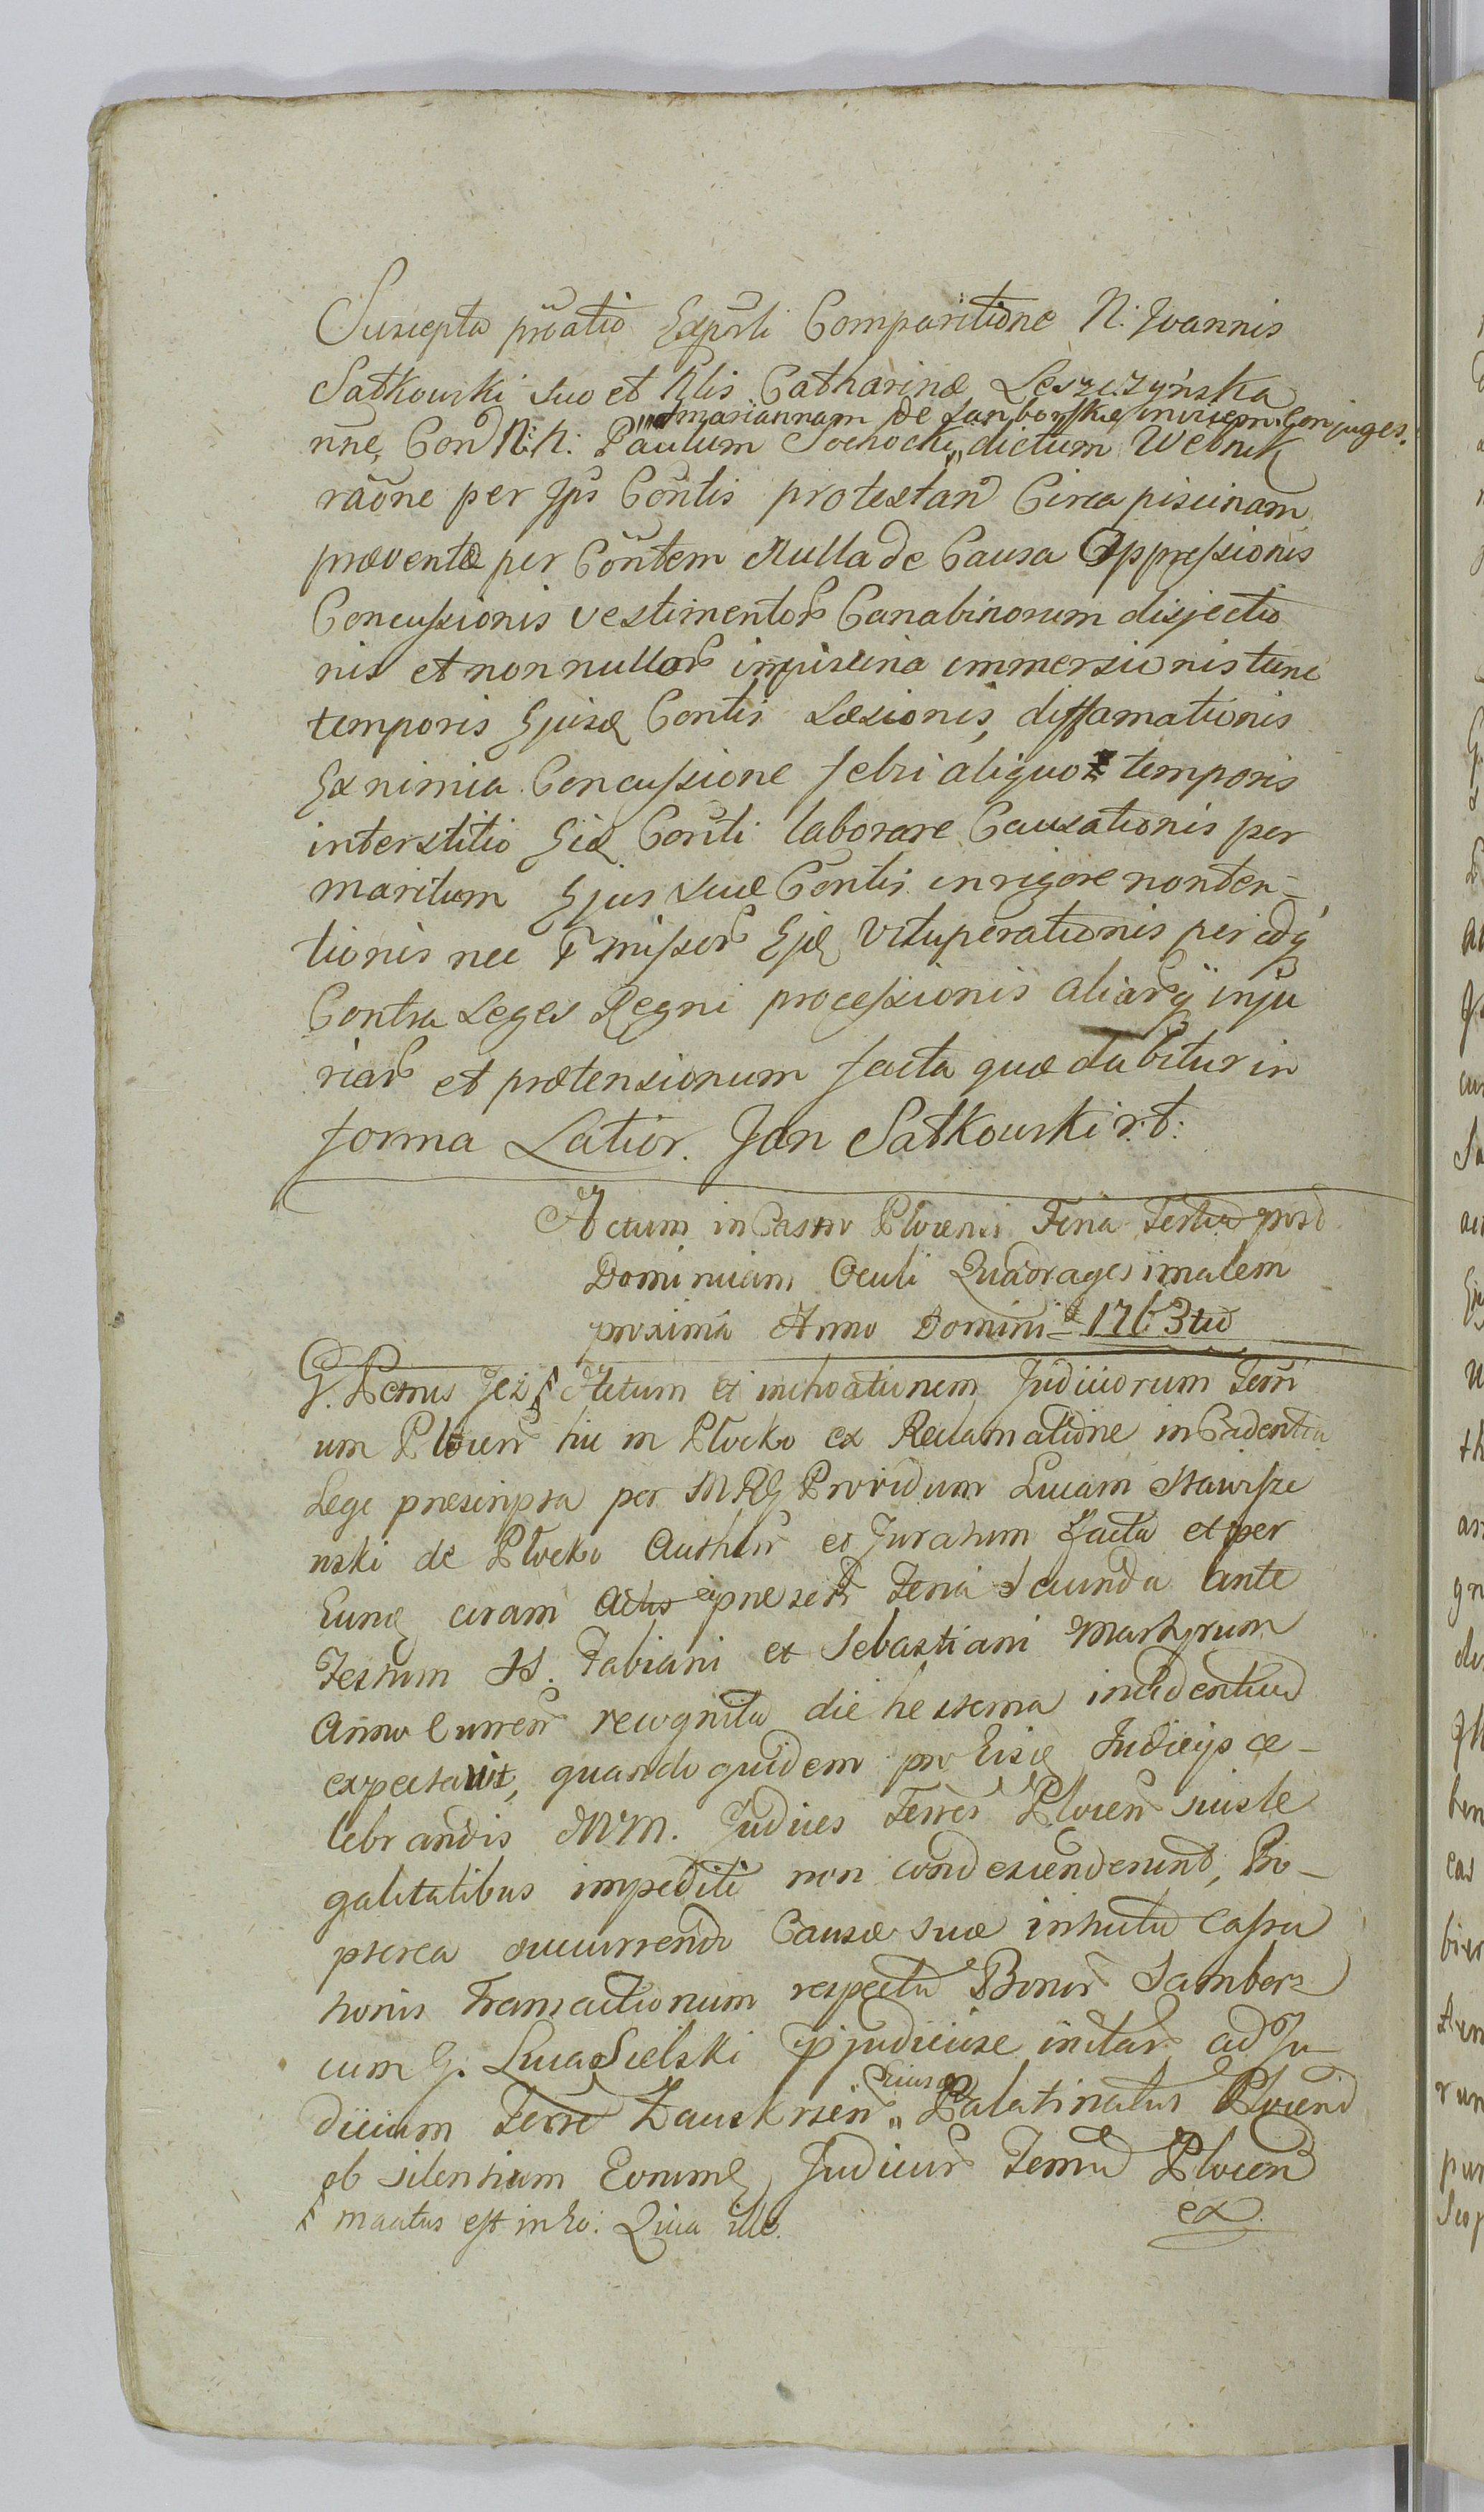 Suscepta pröatio Exprli Comparitione N: Joannis
Satkowski suo et Nlis Catharinæ Leszczyńska
et mariannam de Sanborskie invicem Conjuges.
nne, Con N:N: Paulum Sochocki „ dictum Webnik
raõne per Jps Contis protestan Circa piscinam
præventæ per Contem Nulla de Causa Oppressionis
Concussionis vestimentor Canabinorum disjectio
nis et non nullor in piscina immersionis tunc
temporis Ejusd Contis Læsionis, diffamationis
Ex nimia Concussione febri aliquo temporis
interstitio Eid Conti laborare Causationis per
maritum Ejus suæ Contis in rigore non ten-
tionis nec Ejd vituperationis per
Contra Leges Regni processionis aliarq inju
riar et prætensionum facta quæ dabitur in
forma Latior. Jan Satkowski r:t:
Actum in Castro Plocensi Feria Tertia post
Dominicam Oculi Quadragesimalem
proxima Anno Domini 1763tio
G. Petrus Jeż Actum et inchoationem Judiciorum Terri
um Plocen hic in Plocko ex Reclamatione in Cadentia
Lege prescripta per MRG Providum Lucam Stawisze
nski de Plocko Authen et Juratum facta et per
Eund coram Actis presen Feria Secunda ante
Festum SS. Fabiani et Sebastiani Martyrum
Anno Curren recognita die hesterna incidentia
expectavit, quando quidem pro Eisd Judicijs ce-
lebrandis MM. Judices Terres Plocen suis le
galitatibus impediti non condescenderunt, Pro-
pterea succurrendo Causæ suæ intuitu Cassa
tionis Transactionum respectu Bonor Samborz
cum G. Luca Sielski præjudiciose initar ad Ju-
Eiusd
dicium Terre Zauskrzen „ Palatinatus Plocen
ob silentium Eorumd Judicior Terre Plocen
maatus est inho: Quia ille. ex